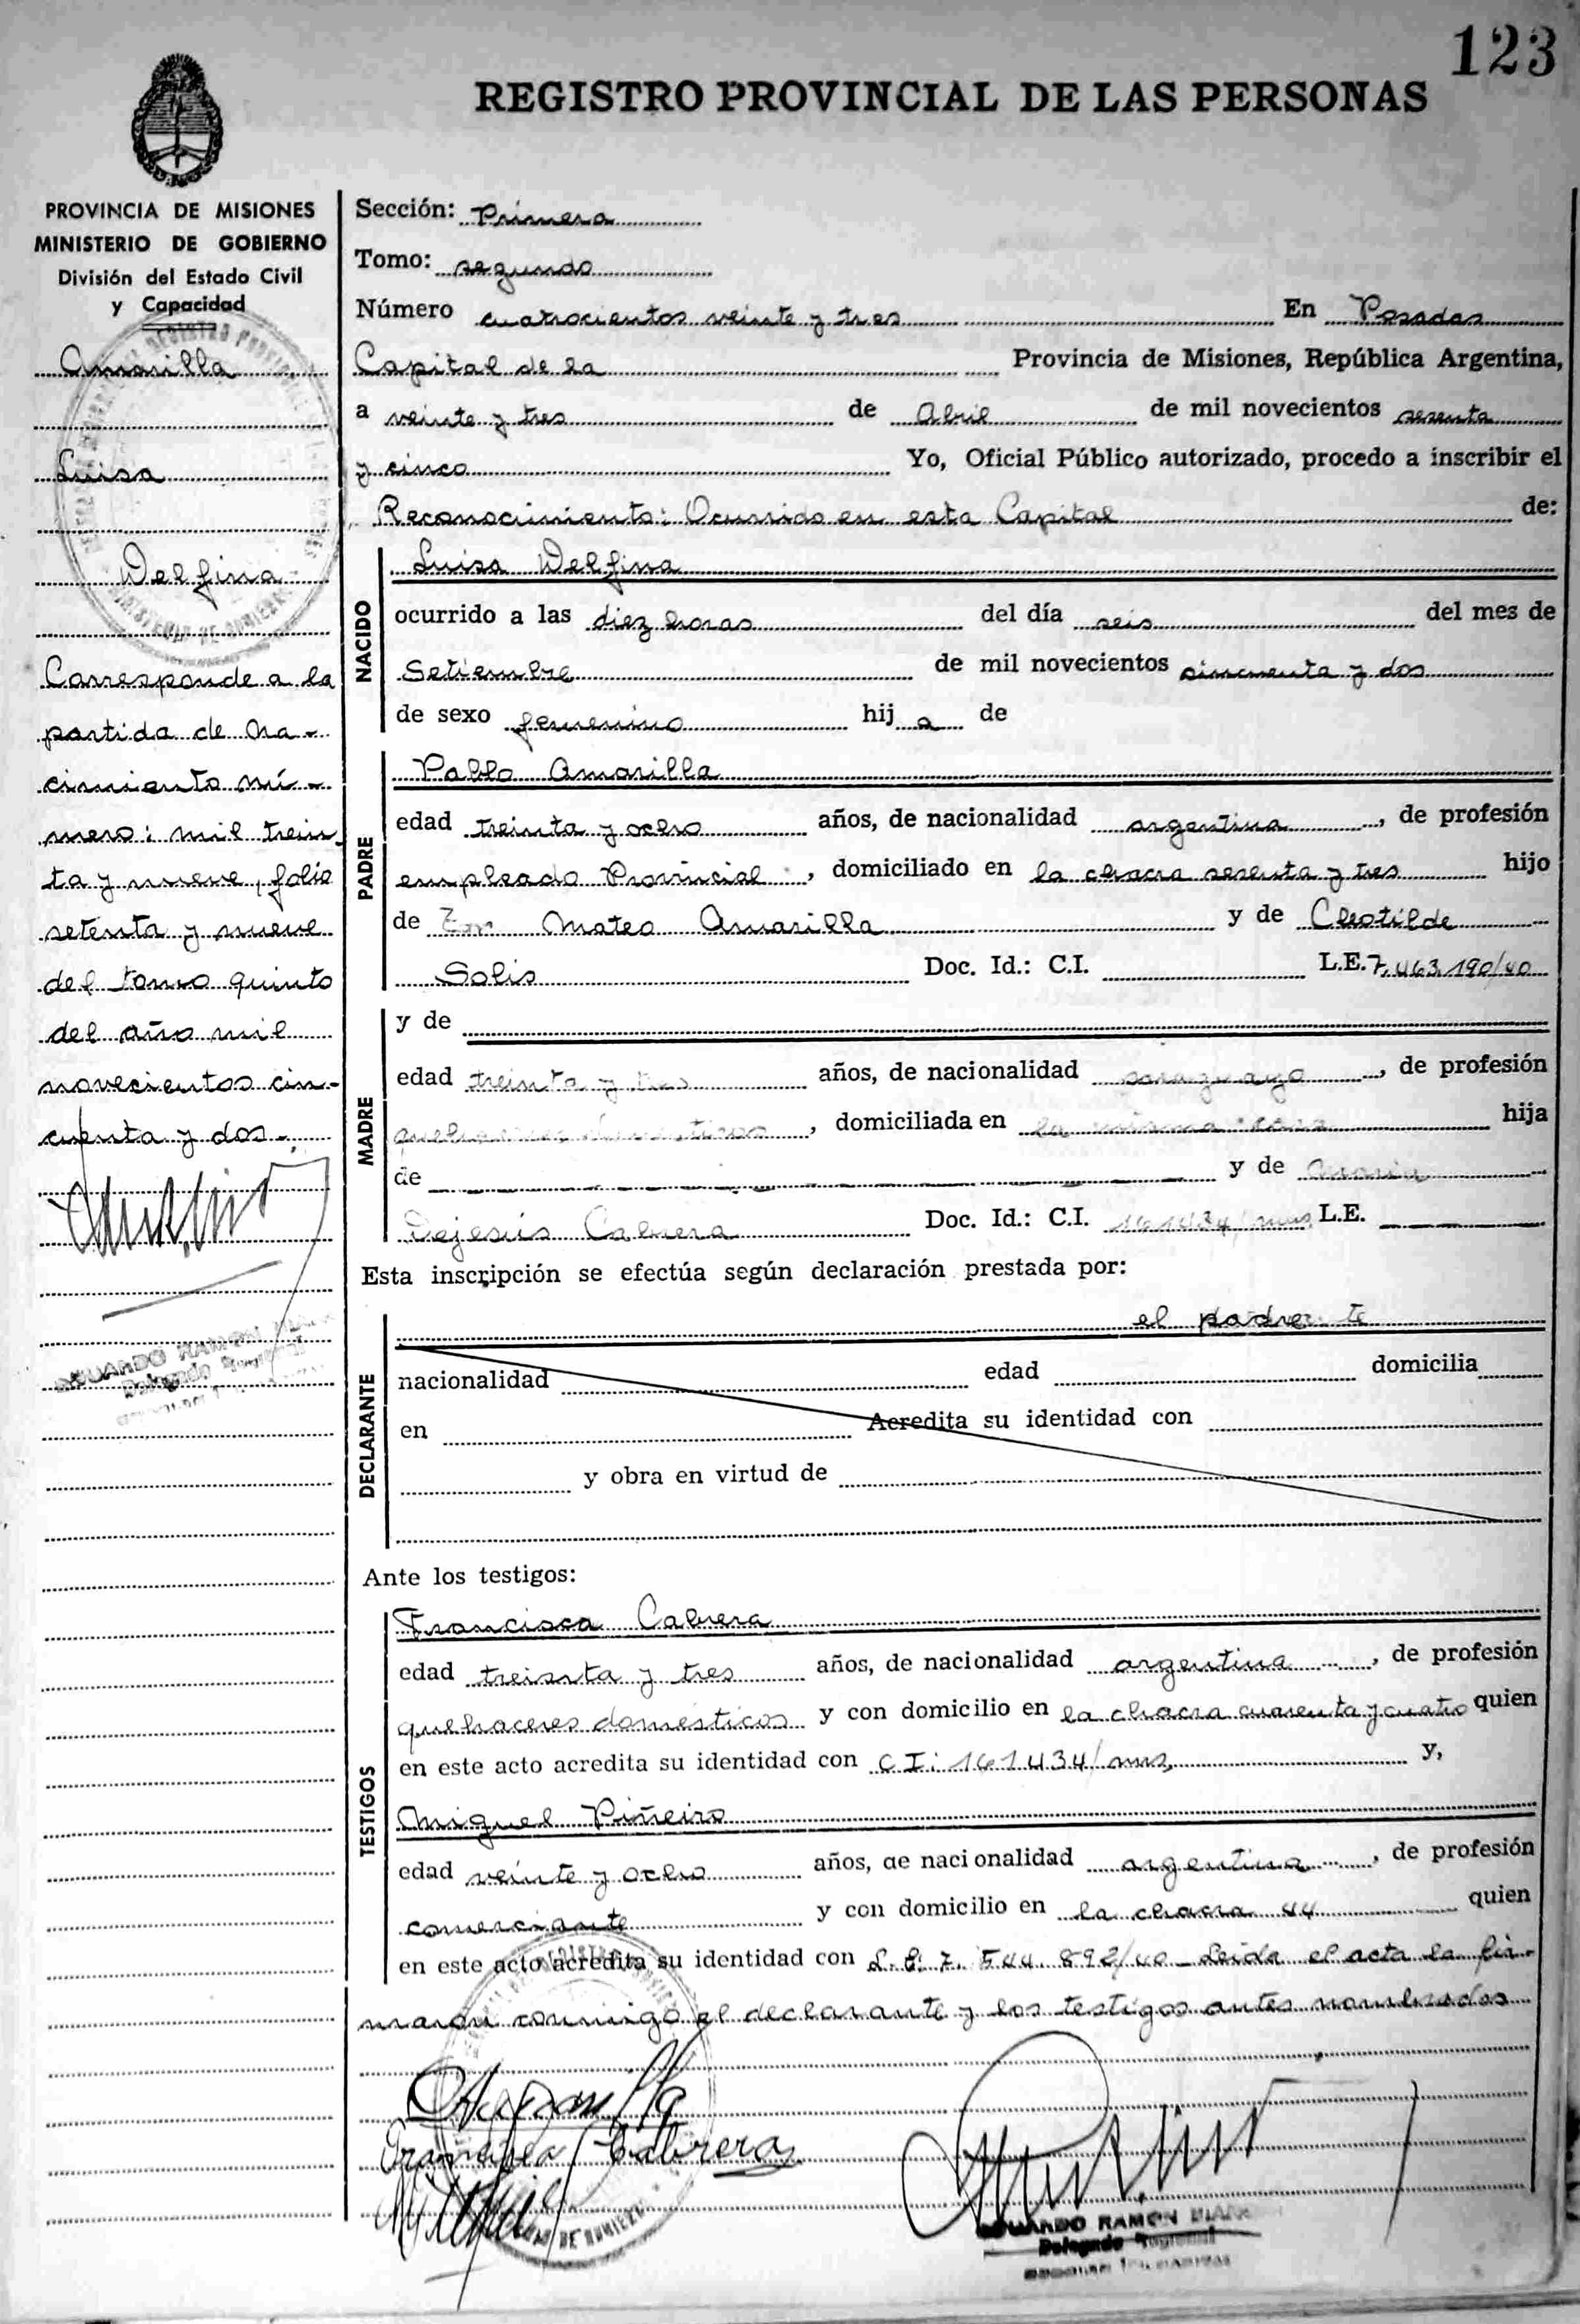 123
REGISTRO PROVINCIAL DE LAS PERSONAS
PROVINCIA DE MISIONES
MINISTERIO DE GOBIERNO
División del Estado Civil
y Capacidad
Amarilla
Luisa
Delfina
Corresponde a la
partida de na-
cimiento nú-
mero: mil trein
ta y nueve, folio
setenta y nueve
del tomo quinto
del año mil
novecientos cin-
cuenta y dos.-
Sección: Primera
Tomo: segundo
Número cuatrocientos veinte y tres En Posadas
Capital de la Provincia de Misiones, República Argentina,
a veinte y tres de Abril de mil novecientos sesenta
y cinco Yo, Oficial Público autorizado, procedo a inscribir el
Reconocimiento: Ocurrido en esta Capital de:
NACIDO
Luisa Delfina
ocurrido a las diez horas del día seis del mes de
Setiembre de mil novecientos cincuenta y dos
de sexo femenino hija de
PADRE
Pablo Amarilla
edad treinta y ocho años, de nacionalidad argentina, de profesión
empleado Provincial, domiciliado en la chacra sesenta y tres hijo
de Mateo Amarilla y de Cleotilde
Solis Doc. Id.: C.I. L.E. 7.463.190/40
MADRE
y de
edad treinta y tres años, de nacionalidad paraguaya, de profesión
quehaceres domesticos, domiciliada en la misma casa hija
de y de Maria
Dejesús Cabrera Doc. Id.: C.I. 161434/mns L.E.
Esta inscripción se efectúa según declaración prestada por:
DECLARANTE
el padre
nacionalidad edad domicilia
en Acredita su identidad con
y obra en virtud de
Ante los testigos:
TESTIGOS
Francisca Cabrera
edad treinta y tres años, de nacionalidad argentina, de profesión
quehaceres domésticos y con domicilio en la chacra cuarenta y cuatro quien
en este acto acredita su identidad con C I: 161434/mns, y,
Miguel Piñeiro
edad veinte y ocho años, de nacionalidad argentina, de profesión
comerciante y con domicilio en la chacra 44 quien
en este acto acredita su identidad con L.E. 7.544.892/40 Leida el acta la fir-
maron conmigo el declarante y los testigos antes nombrados
Amarilla
Francisca Cabrera
EDUARDO RAMON
Delegado